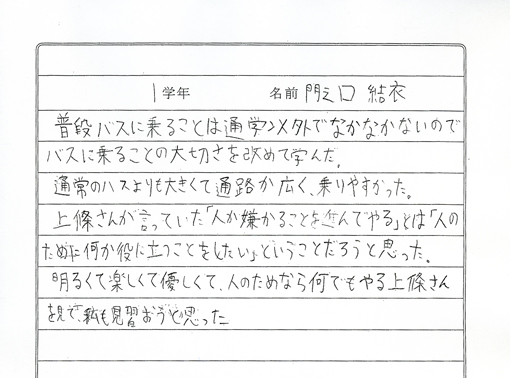 1 学年 名前 門之口 結衣
普段バスに乗ることは通学以外でなかなかないので
バスに乗ることの大切さを改めて学んだ。
通常のバスよりも大きくて通路が広く、乗りやすかった。
上條さんが言っていた「人が嫌がることを進んでやる」とは「人の
ために何か役に立つことをしたい」ということだろうと思った。
明るくて楽しくて優しくて、人のためなら何でもやる上條さん
を見て、私も見習おうと思った